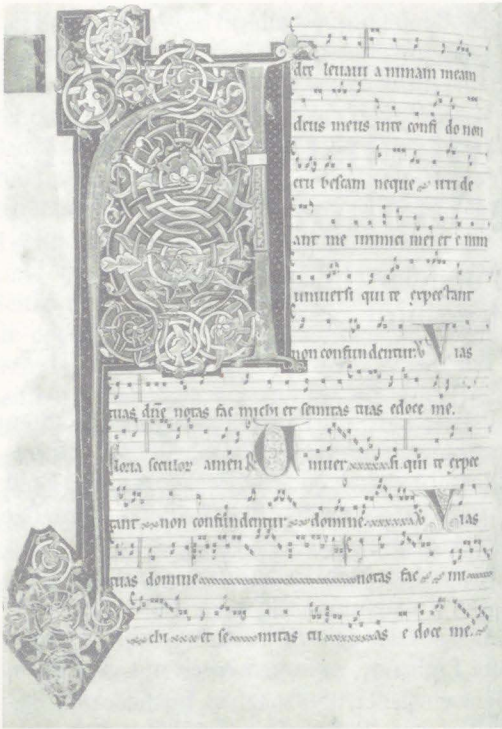 A
dte levavi animam meam
deus meus in te confi do non
eru bescam neque irri de
ant me inimici mei et e nim
universi qui te expectant
non confundentur. V ias
tuas dñe notas fac michi et semitas tuas edoce me.
Gloria seculor amen U niver si qui te expec
tant non confundentur domine V ias
tuas domine notas fac mi
chi et se mitas tu as e doce me.